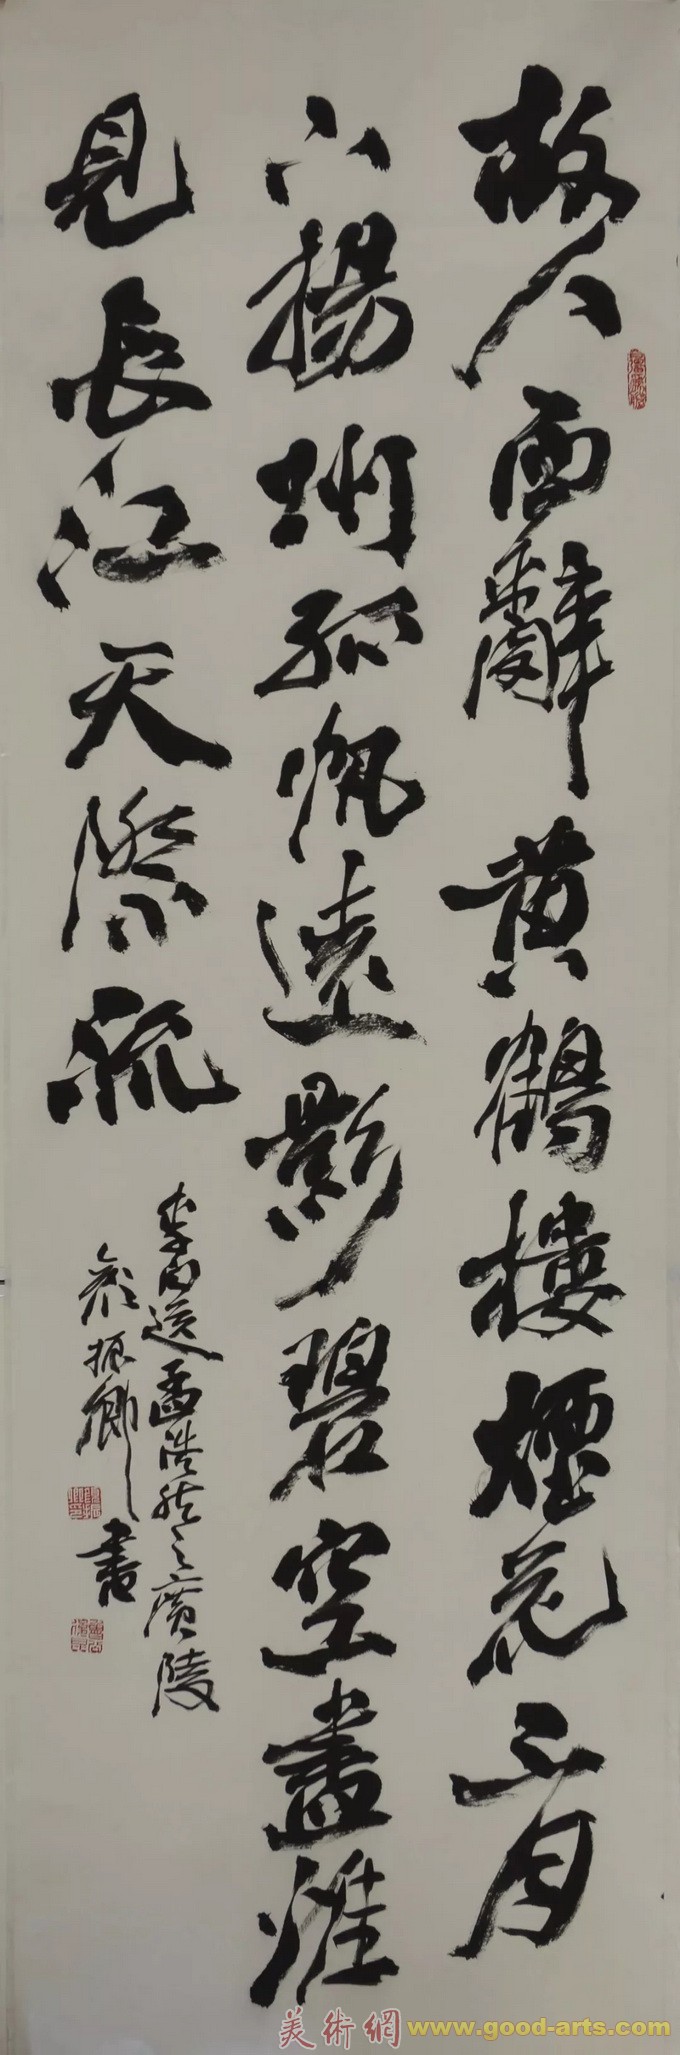 故人西辭黄鶴樓煙花三月
下揚州孤帆遠影碧空盡惟
見長江天際流
李白送孟浩然之廣陵
振卿書
美術網 www.good-arts.com